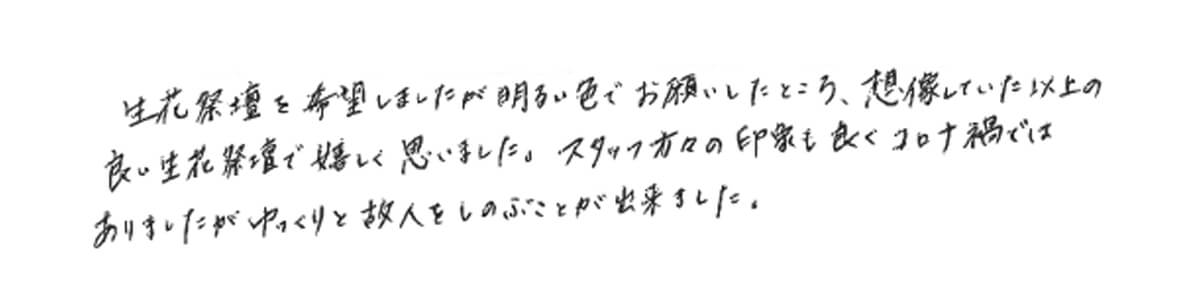 生花祭壇を希望しましたが明るい色でお願いしたところ、想像していた以上の
良い生花祭壇で嬉しく思いました。スタッフ方々の印象も良くコロナ禍では
ありましたがゆっくりと故人をしのぶことが出来ました。